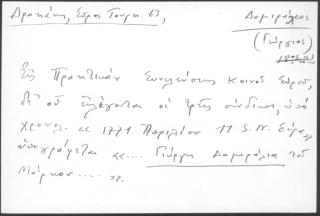 Δρακάκη, Σύρος Τουρκ. 63,
Δαμιράλιας
(Γιώργιος)
Εἰς Πρακτικὸν Συνελεύσεως Κοινοῦ Σύρου,
δι' οὗ ἐκλέγονται οἱ τρεῖς σύνδικοι, ὑπὸ
χρονολ. « 1771 Ἀπριλίου 11 S.N. Σύρα
ὑπογράφεται «... Γιώργη Δαμιράλια τοῦ
Μάρκου.... ».